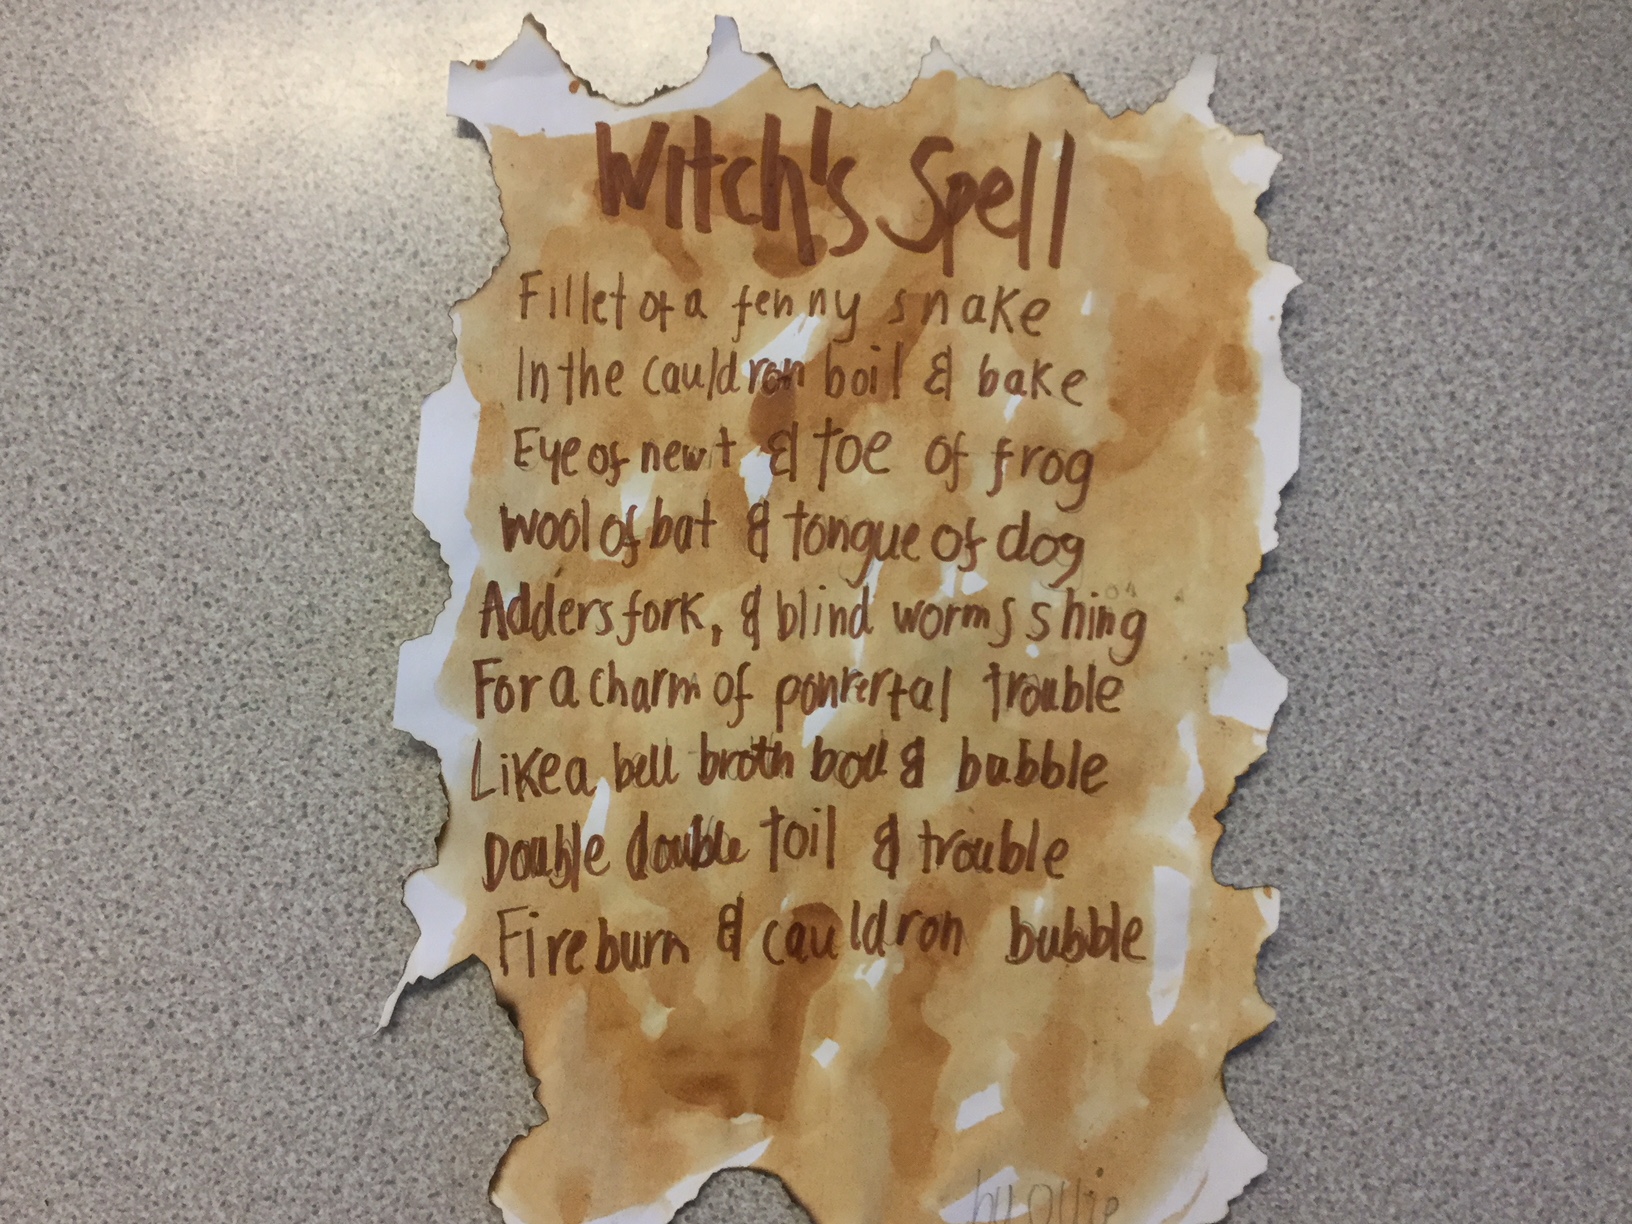 Witch's Spell
Fillet of a fenny snake
In the cauldron boil & bake
Eye of newt & toe of frog
Wool of bat & tongue of dog
Adders fork, & blind worms shing
For a charm of trouble
Like a bell broth boil & bubble
Double double toil & trouble
Fire burn & cauldron bubble
by Ollie